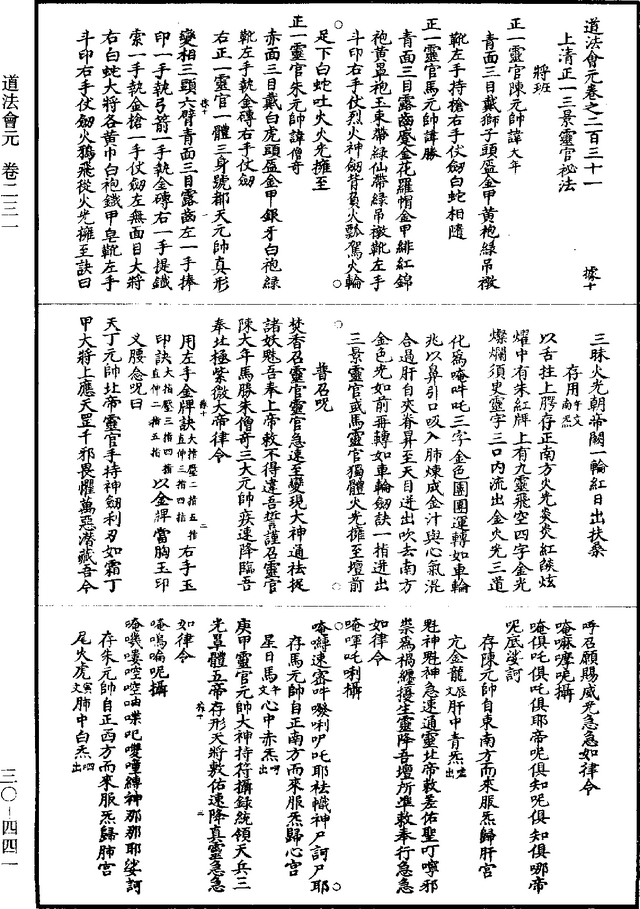 道法會元卷之二百三十一 據十
上清正一三景靈官祕法
將班
正一靈官陳元帥諱大年
青面三目戴獅子頭盔金甲黃袍綠吊襖
靴左手持槍右手仗劒白蛇相隨
正一靈官馬元帥諱勝
青面三目露齒蹙金花羅帽金甲緋紅錦
袍黃罩袍玉束帶綠仙帶綠吊襖靴左手
斗印右手仗烈火神劒背負火瓢駕火輪
足下白蛇吐火火光擁至
正一靈官朱元帥諱僧奇
赤面三目戴白虎頭盔金甲銀牙白袍綠
靴左手執金磚右手仗劒
右正一靈官一體三身號都天元帥真形
變相三頭六臂青面三目露齒左一手捧
印一手執弓箭一手執金磚右一手提鐵
索一手執金槍一手仗劒左無面目大將
右白蛇大將各黃巾白袍鐵甲皂靴左手
斗印右手仗劒火鴉飛從火光擁至訣曰
三昧火光朝帝闕一輪紅日出扶桑
存用午文南炁
以舌拄上腭存正南方火光炎炎紅燄炫
燿中有朱紅牌上有九靈飛空四字金光
燦爛須臾靈字三口內流出金火光三道
化為唵吽吒三字金色團團運轉如車輪
兆以鼻引口吸入肺煉成金汁與心氣混
合過肝自夾脊昇至天目迸出吹去南方
金色光如前再轉如車輪劒訣一指迸出
三景靈官或馬靈官獨體火光擁至壇前
普召呪
焚香召靈官靈官急速至變現大神通祛捉
諸妖魅吾奉上帝敕不得違吾誓謹召靈官
陳大年馬勝朱僧奇三大元帥疾速降臨吾
奉北極紫微大帝律令
用左手金牌訣大指壓二指五指直伸三指四指右手玉
印訣大指壓三指四指直伸二指五指以金牌當胸玉印
叉腰念呪曰
天丁元帥北帝靈官手持神劒利刃如霜丁
甲大將上應天罡千邪畏懼萬惡潛藏吾今
呼召願賜威光急急如律令
唵嘛㖿呢攝
唵俱吒俱吒俱耶帝呢俱知呢俱知俱哪帝
呢底娑訶
存陳元帥自東南方而來服炁歸肝宮
亢金龍辰文肝中青炁出
魁神魁神急速通靈北帝敕差佑聖叮嚀邪
祟為禍纏擾生靈降吾壇所準敕奉行急急
如律令
唵㖷吒唎攝
唵縛速吽唎吒耶祛幟神尸訶尸耶
存馬元帥自正南方而來服炁歸心宮
星日馬午文心中赤炁呵出
庚甲靈官元帥大神持符攝錄統領天兵三
光罩體五帝存形天將敷佑速降真靈急急
如律令
唵嗚㖮呢攝
唵嘰嘍啌啌㖕喋吧嚶㗢縛神那那耶娑訶
存朱元帥自正西方而來服炁歸肺宮
尾火虎寅文肺中白炁呬出
道法會元 卷二三一
三〇—四四一